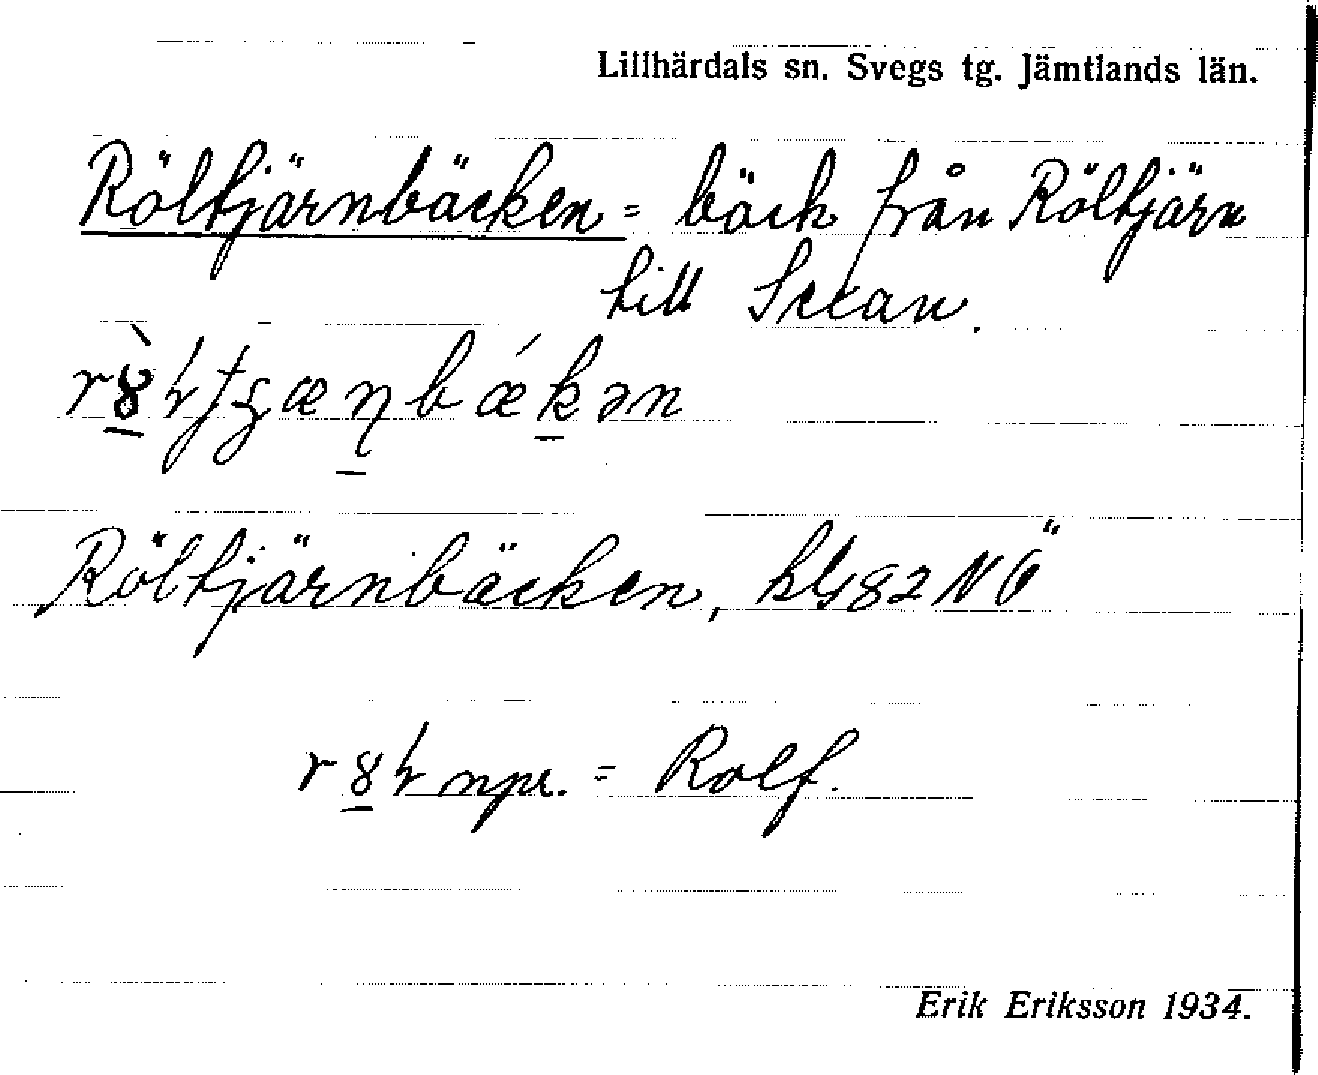 Lillhärdals sn. Svegs tg. Jämtlands län.
Röltjärnbäcken = bäck från Röltjärn
till Sexan.
Röltjärnbäcken, kbl 82 NÖ
npr. = Rolf.
Erik Eriksson 1934.